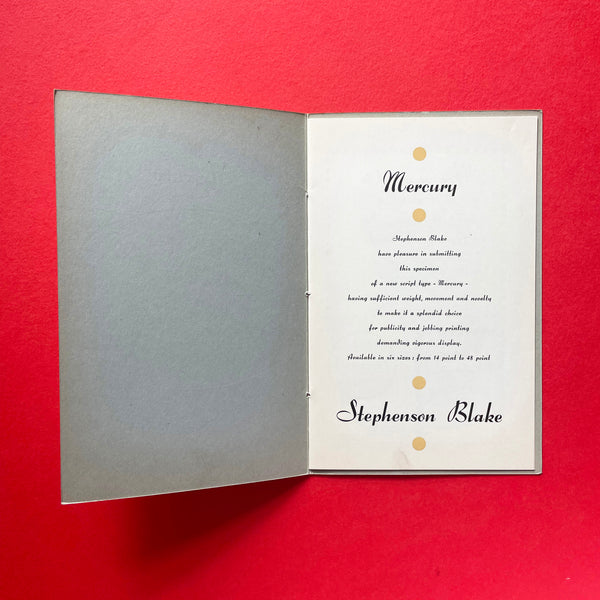 Mercury
Stephenson Blake
have pleasure in submitting
this specimen
of a new script type - Mercury -
having sufficient weight, movement and novelty
to make it a splendid choice
for publicity and jobbing printing
demanding vigorous display.
Available in six sizes: from 14 point to 48 point
Stephenson Blake